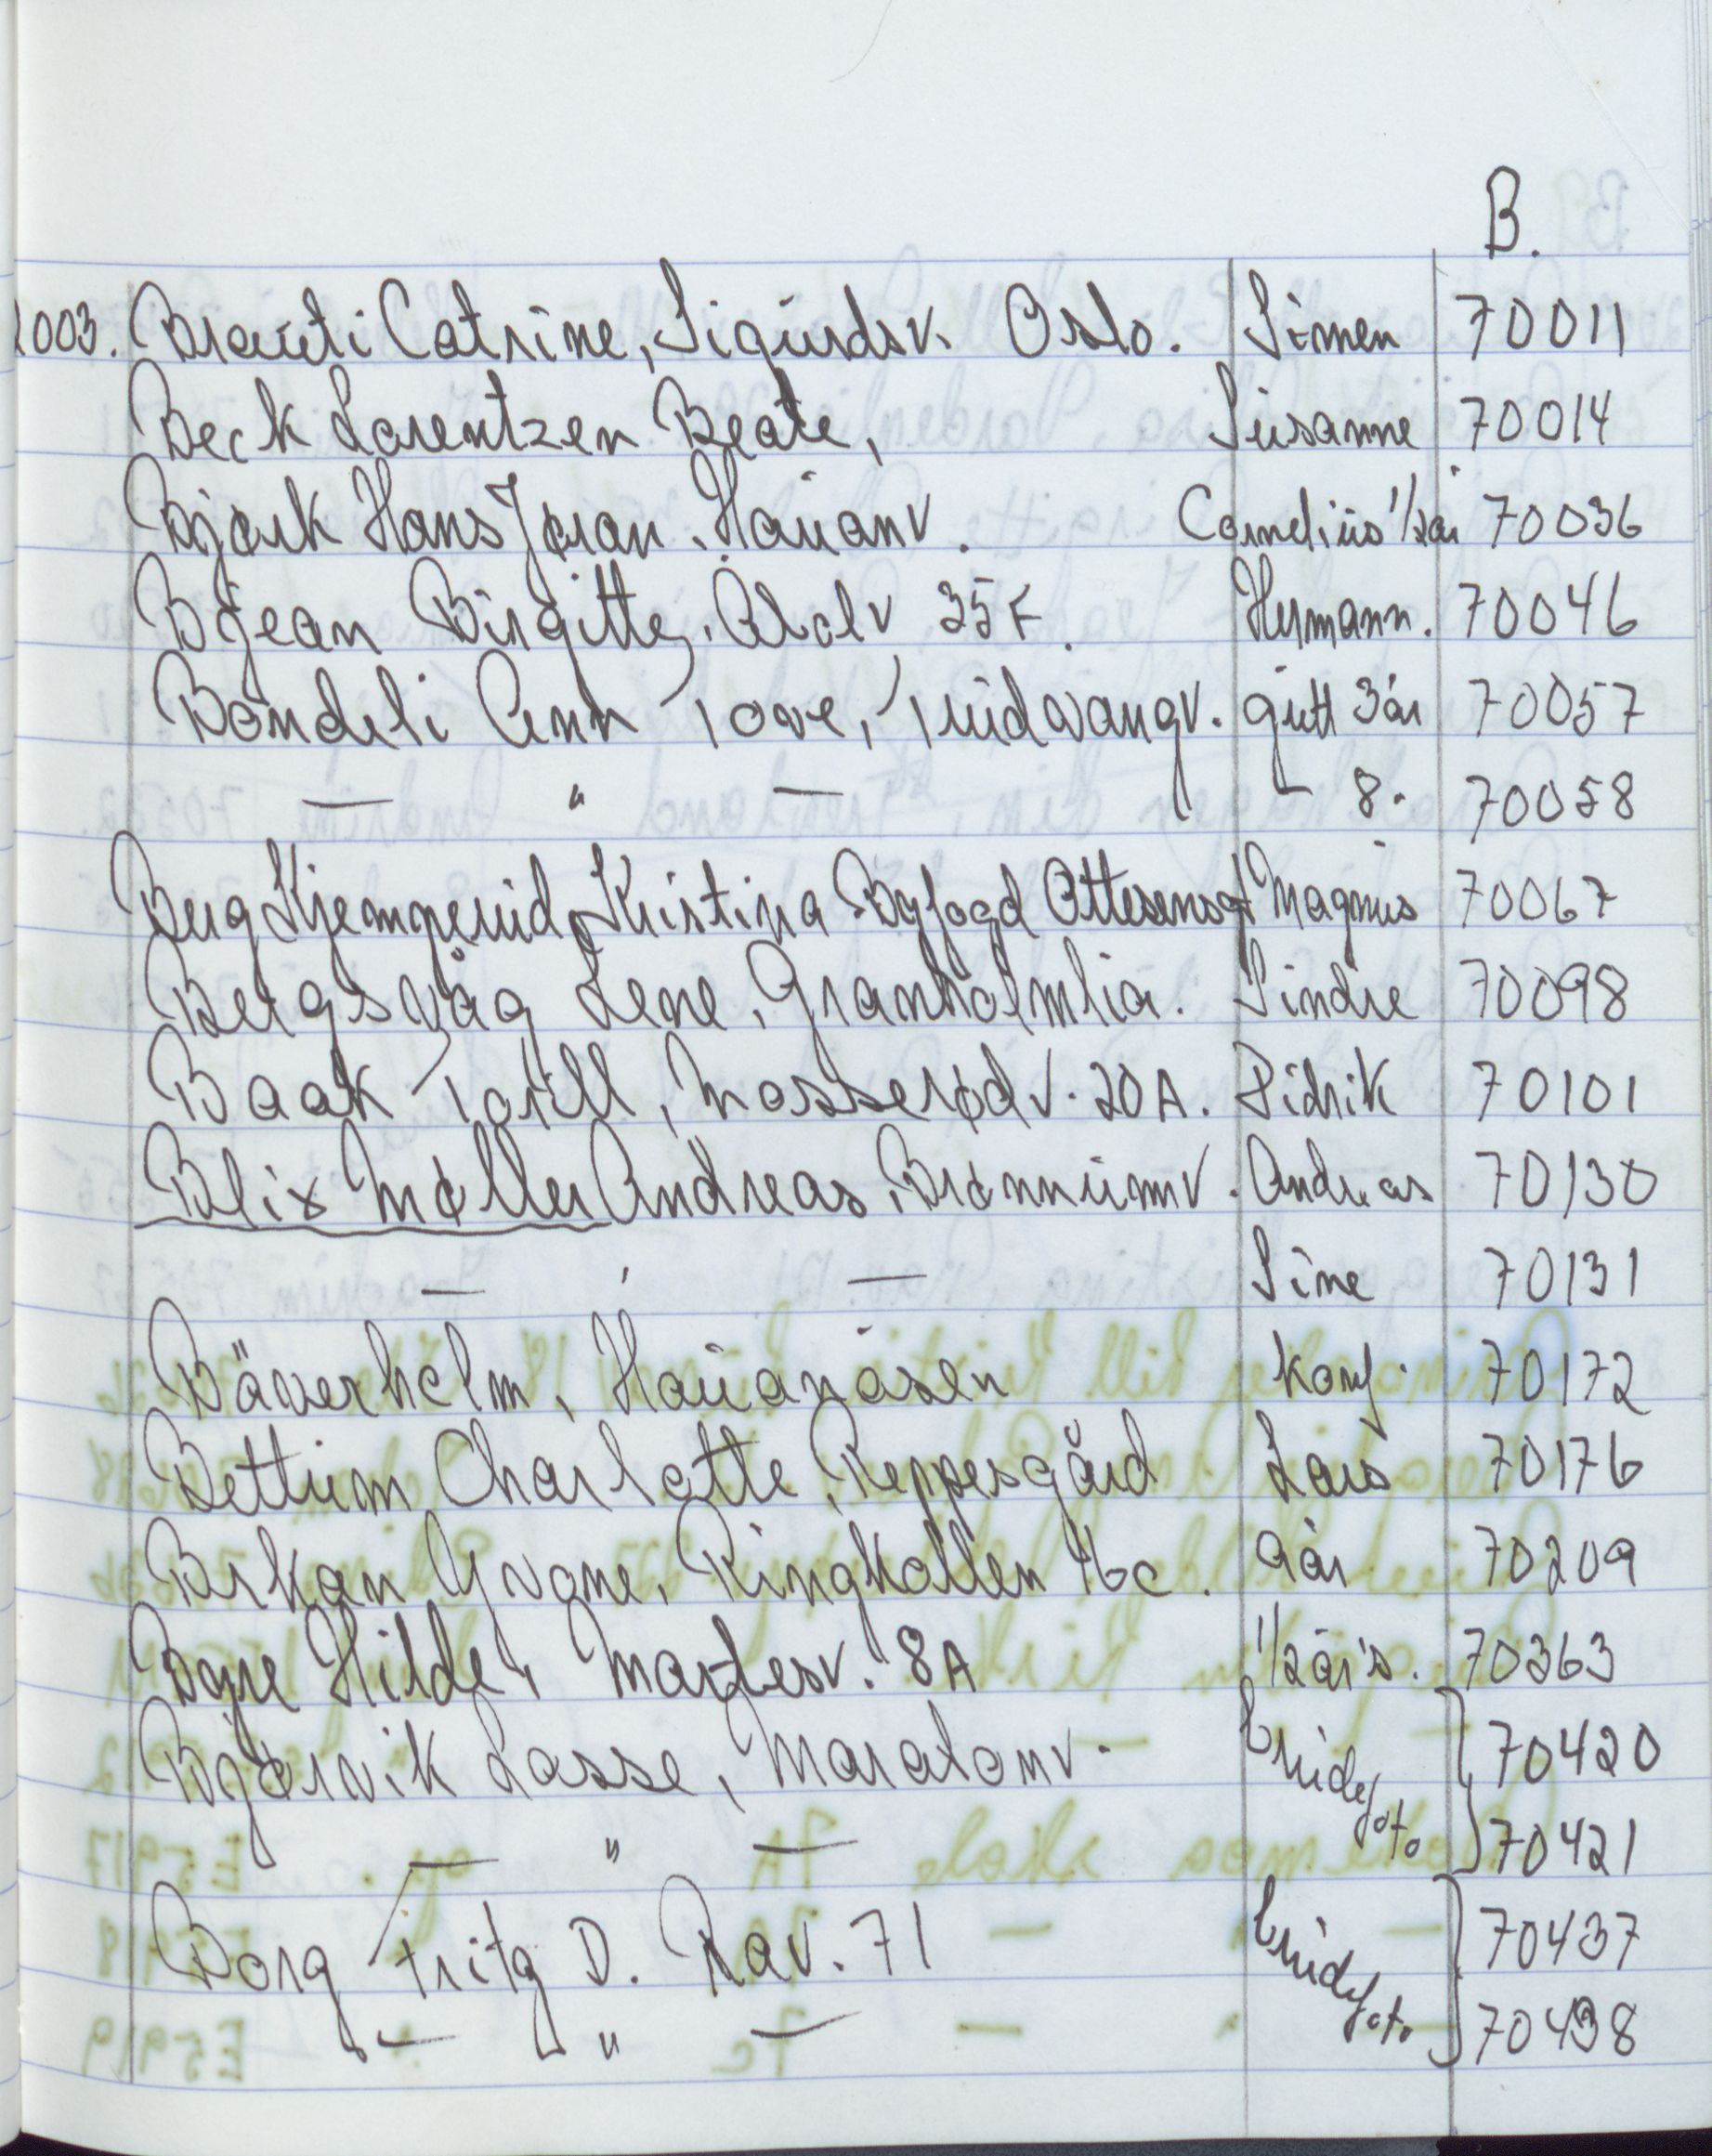 B.
2003. Brauti Catrine, Sigurdsv. Oslo. Simen 70011
Beck Lorentzen Beate, Susanne 70014
Bjørk Hans Jøran, Hauanv. Cornelius 1/2 år 70036
Bjean Birgitte, 35 F. Hermann. 70046
Bondeli Ann Tove, Tuidvangv. gutt 3 år 70057
— " — — 8. 70058
Berg Kjemperud, Kristina Byfogd Ottesensgt Magnus 70067
Bergsvåg Lene, Granholmlia. Sindre 70098
Baak Torill, Mosserødv. 20A. Didrik 70101
Blix Møller Andreas, Brønnumv. Andreas 70130
— ' — Sine 70131
Bäverholm, Hauanåsen konf. 70172
Bettum Charlotte, Reppesgård Lars 70176
Birkan Yvone, Ringkollen 16c. 9 år 70209
Børe Hilde, Marlesv. 8A 1/2 års. 70363
Bjørvik Lasse, Maratonv. brudefoto 70420
— " — 70421
Borg Fritz D. Rav. 71 brudefoto 70437
— " — 70438